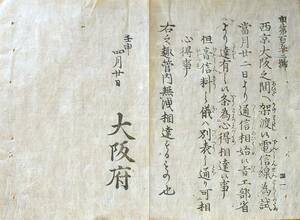 西京大阪之間架渡ス電信線為試
当月廿二日ヨリ通信相始ル旨工部省
ヨリ達有之候条為心得相達候事
但音信料ノ儀ハ別表之通リ可相
心得事
右之趣管内無洩相達スルモノ也
壬申
四月廿日
大阪府